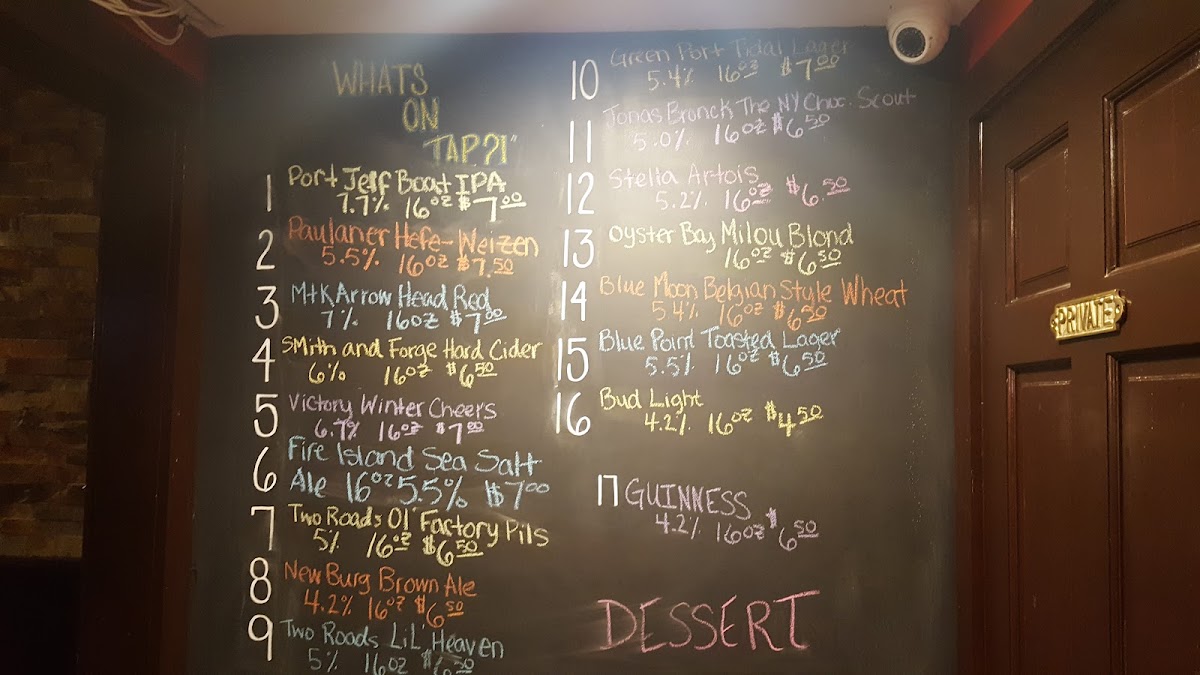 "WHATS
ON
TAP?!"
1 Port Jeff Boat IPA
7.7% 16oz $7.00
2 Paulaner Hefe-Weizen
5.5% 16oz $7.50
3 MtK Arrow Head Red
7% 16oz $7.00
4 SMith and Forge Hard Cider
6% 16oz $6.50
5 Victory Winter Cheers
6.7% 16oz $7.00
6 Fire Island Sea Salt
Ale 16oz 5.5% $7.00
7 Two Roads Ol' Factory Pils
5% 16oz $6.50
8 New Burg Brown Ale
4.2% 16oz $6.50
9 Two Roads LiL' Heaven
5% 16oz $6.50
10 Green Port Tidal Lager
5.4% 16oz $7.00
11 Jonas Bronck The NY Choc. Scout
5.0% 16oz $6.50
12 Stella Artois
5.2% 16oz $6.50
13 Oyster Bay Milou Blond
16oz $6.50
14 Blue Moon Belgian Style Wheat
5.4% 16oz $6.50
15 Blue Point Toasted Lager
5.5% 16oz $6.50
16 Bud Light
4.2% 16oz $4.50
17 GUINNESS
4.2% 16oz $6.50
DESSERT
PRIVATE